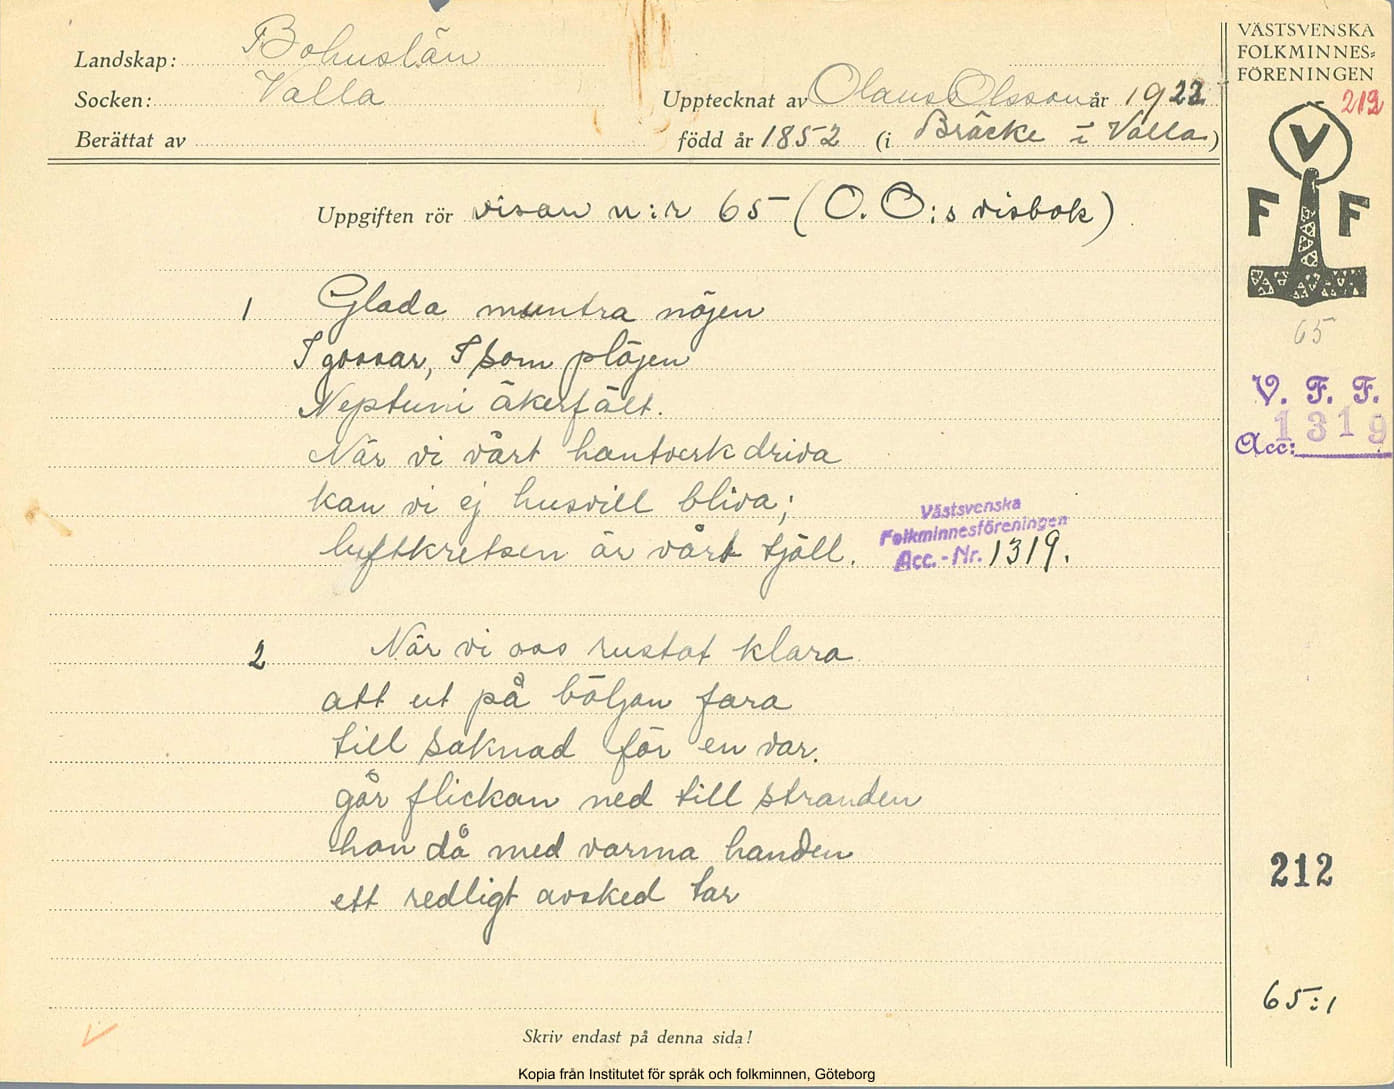 Landskap: Bohuslän
Socken: Valla
Berättat av
Upptecknat av Olaus Olsson år 1922
född år 1852 (i Bräcke i Valla)
VÄSTSVENSKA
FOLKMINNES=
FÖRENINGEN
212
V
F F
Uppgiften rör visan n:r 65 (O. O:s visbok)
1 Glada muntra nöjen
I gossar, I som plöjen
Neptuni åkerfält.
När vi vårt hantverk driva
kan vi ej husvill bliva;
luftkretsen är vårt tjäll.
Västsvenska
Folkminnesföreningen
Acc.-Nr. 1319.
65
V. F. F.
Acc: 1319
2 När vi oss rustat klara
att ut på böljan fara
till saknad för en var.
går flickan ned till stranden
han då med varma handen
ett redligt avsked tar
212
65:1
Skriv endast på denna sida!
Kopia från Institutet för språk och folkminnen, Göteborg